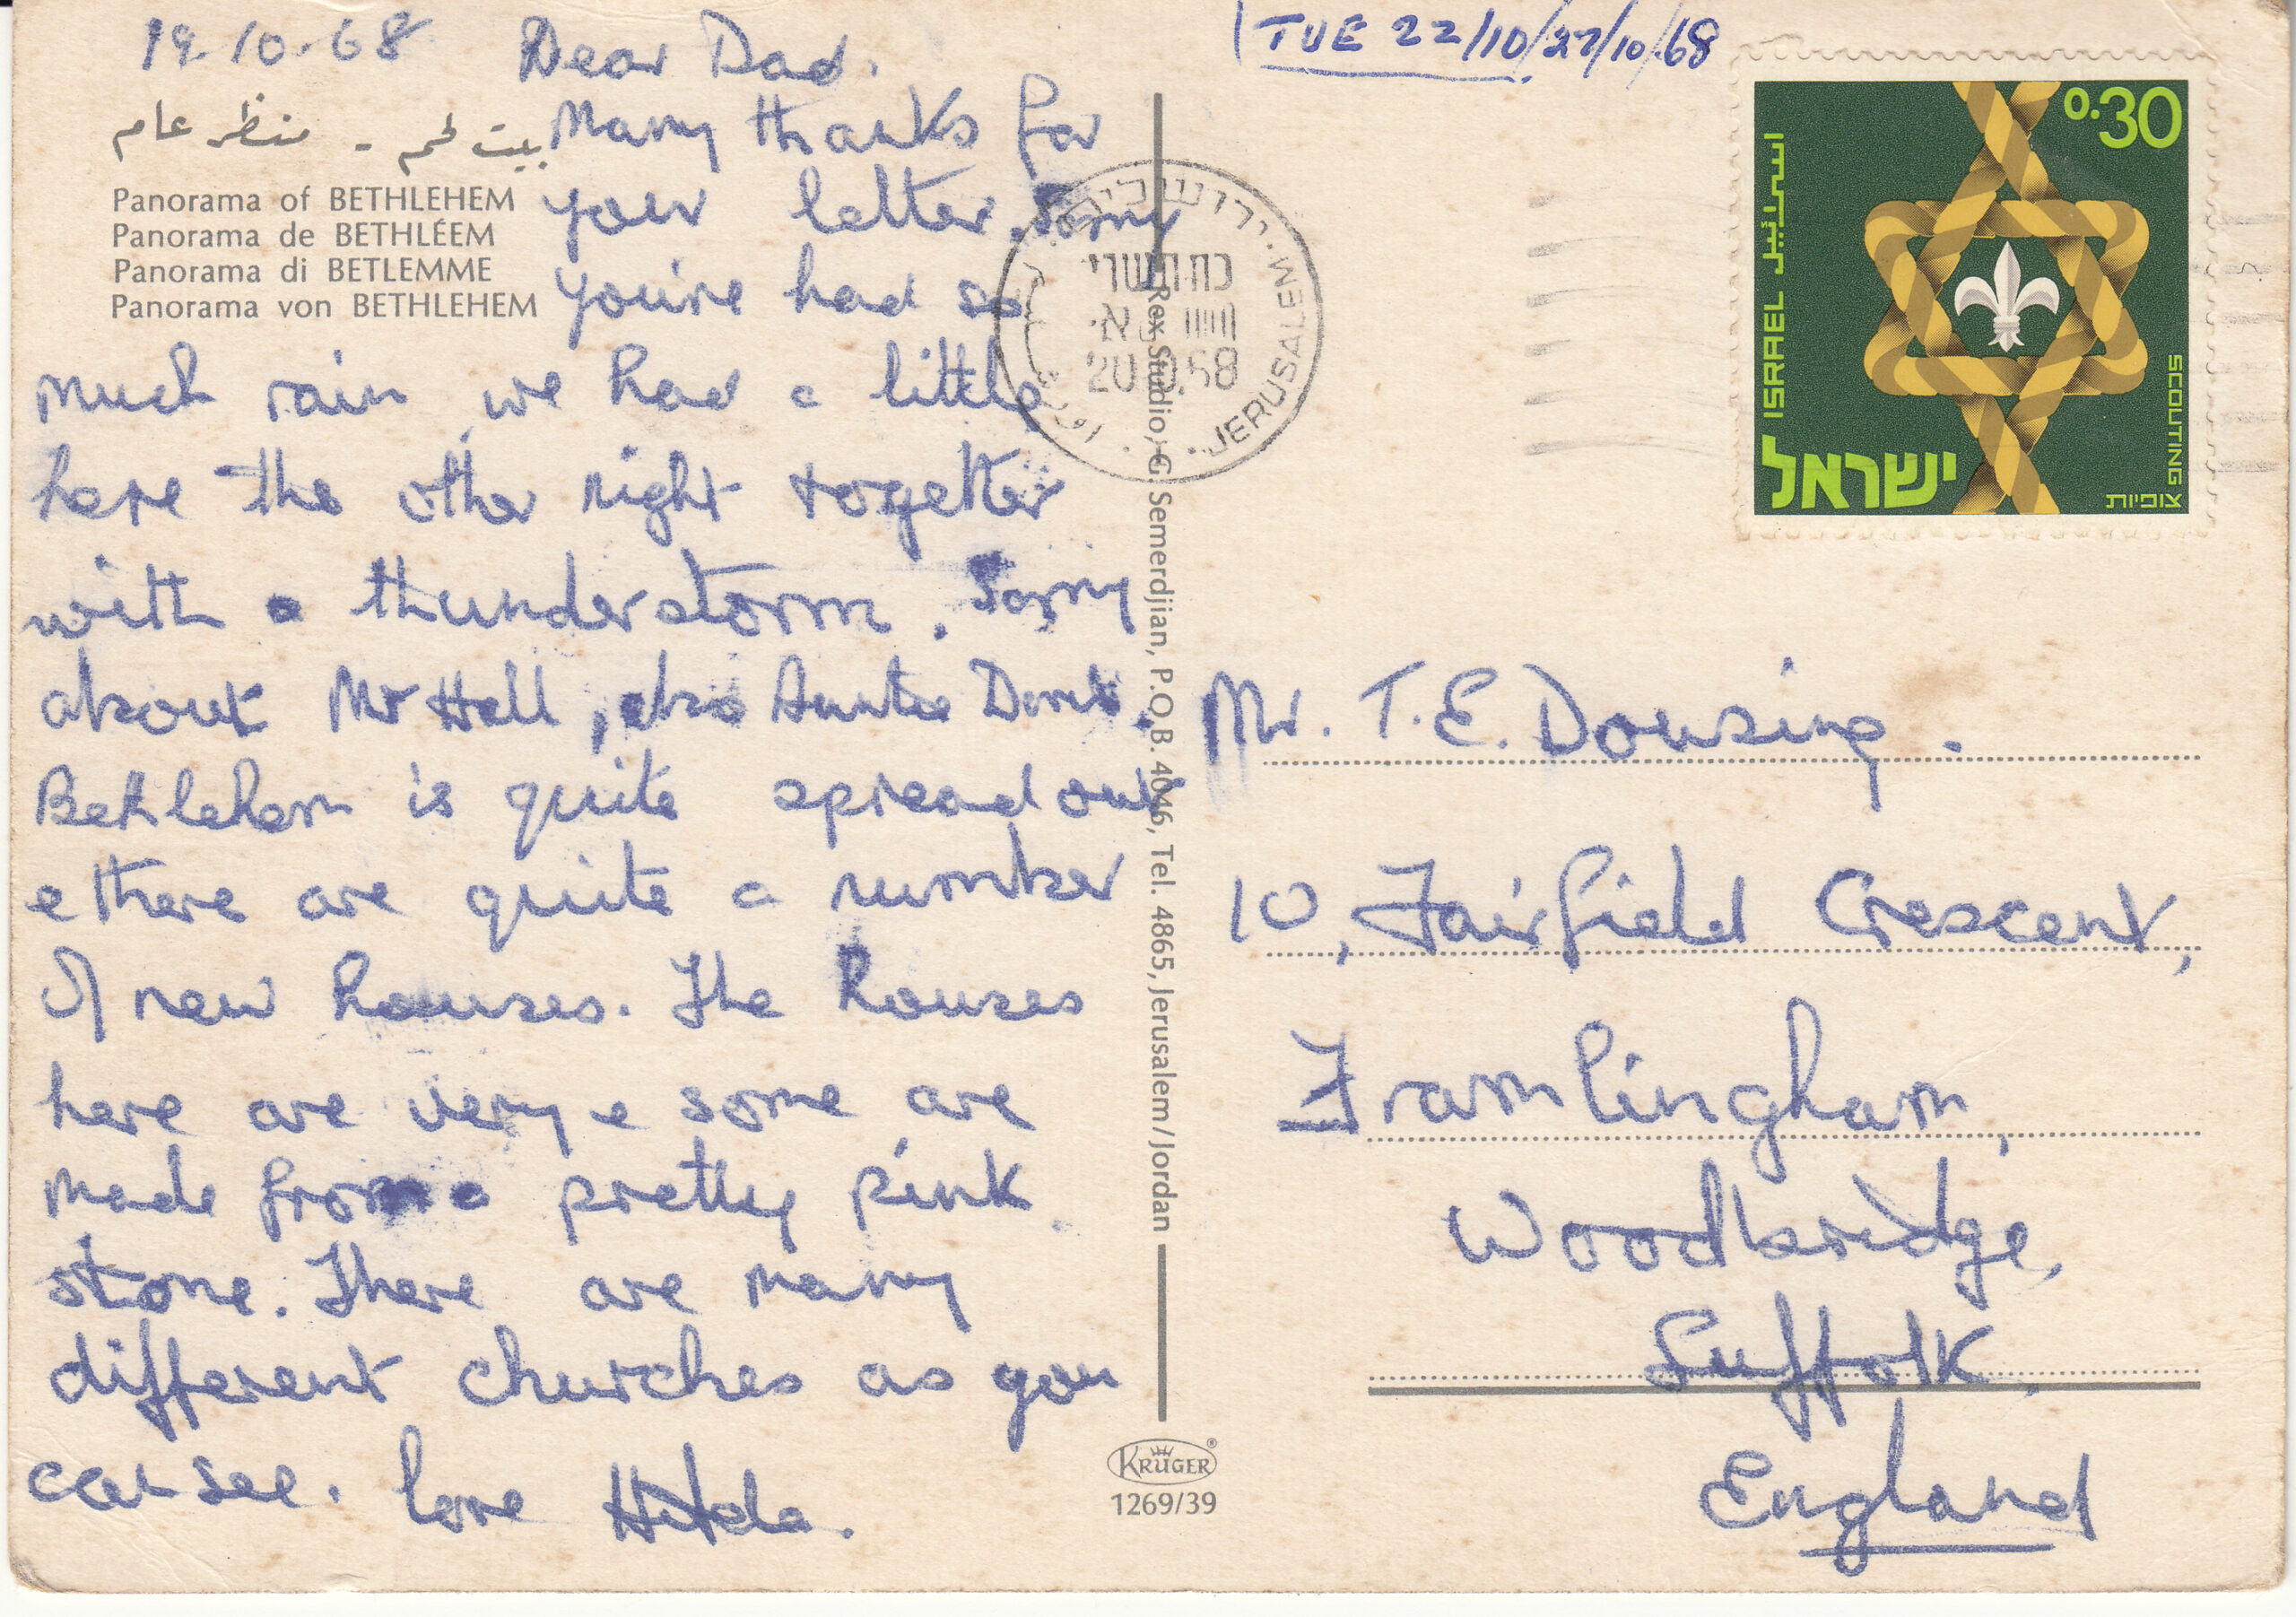 19-10-68 Dear Dad.
Many thanks for
your letter, Sorry
you've had so
much rain, we had a little
here the other night together
with a thunderstorm. Sorry
about Mr Hall, also Auntie Doris.
Bethlehem is quite spread out
e there are quite a number
of new houses. The houses
here are very e some are
made from a pretty pink
stone. There are many
different churches as you
can see. love Hilda.
بيت لحم - منظر عام
Panorama of BETHLEHEM
Panorama de BETHLÉEM
Panorama di BETLEMME
Panorama von BETHLEHEM
Rex Studio, G. Semerdjian, P.O.B. 4046, Tel. 4865, Jerusalem/Jordan
KRÜGER®
1269/39
TUE 22/10/27/10/68
ירושלים
JERUSALEM
תשרי
20.10.68
0.30
اسرائيل ISRAEL
ישראל
SCOUTING
צופיות
Mr. T.E. Dowsing.
10, Fairfield Crescent,
Framlingham,
Woodbridge,
Suffolk,
England